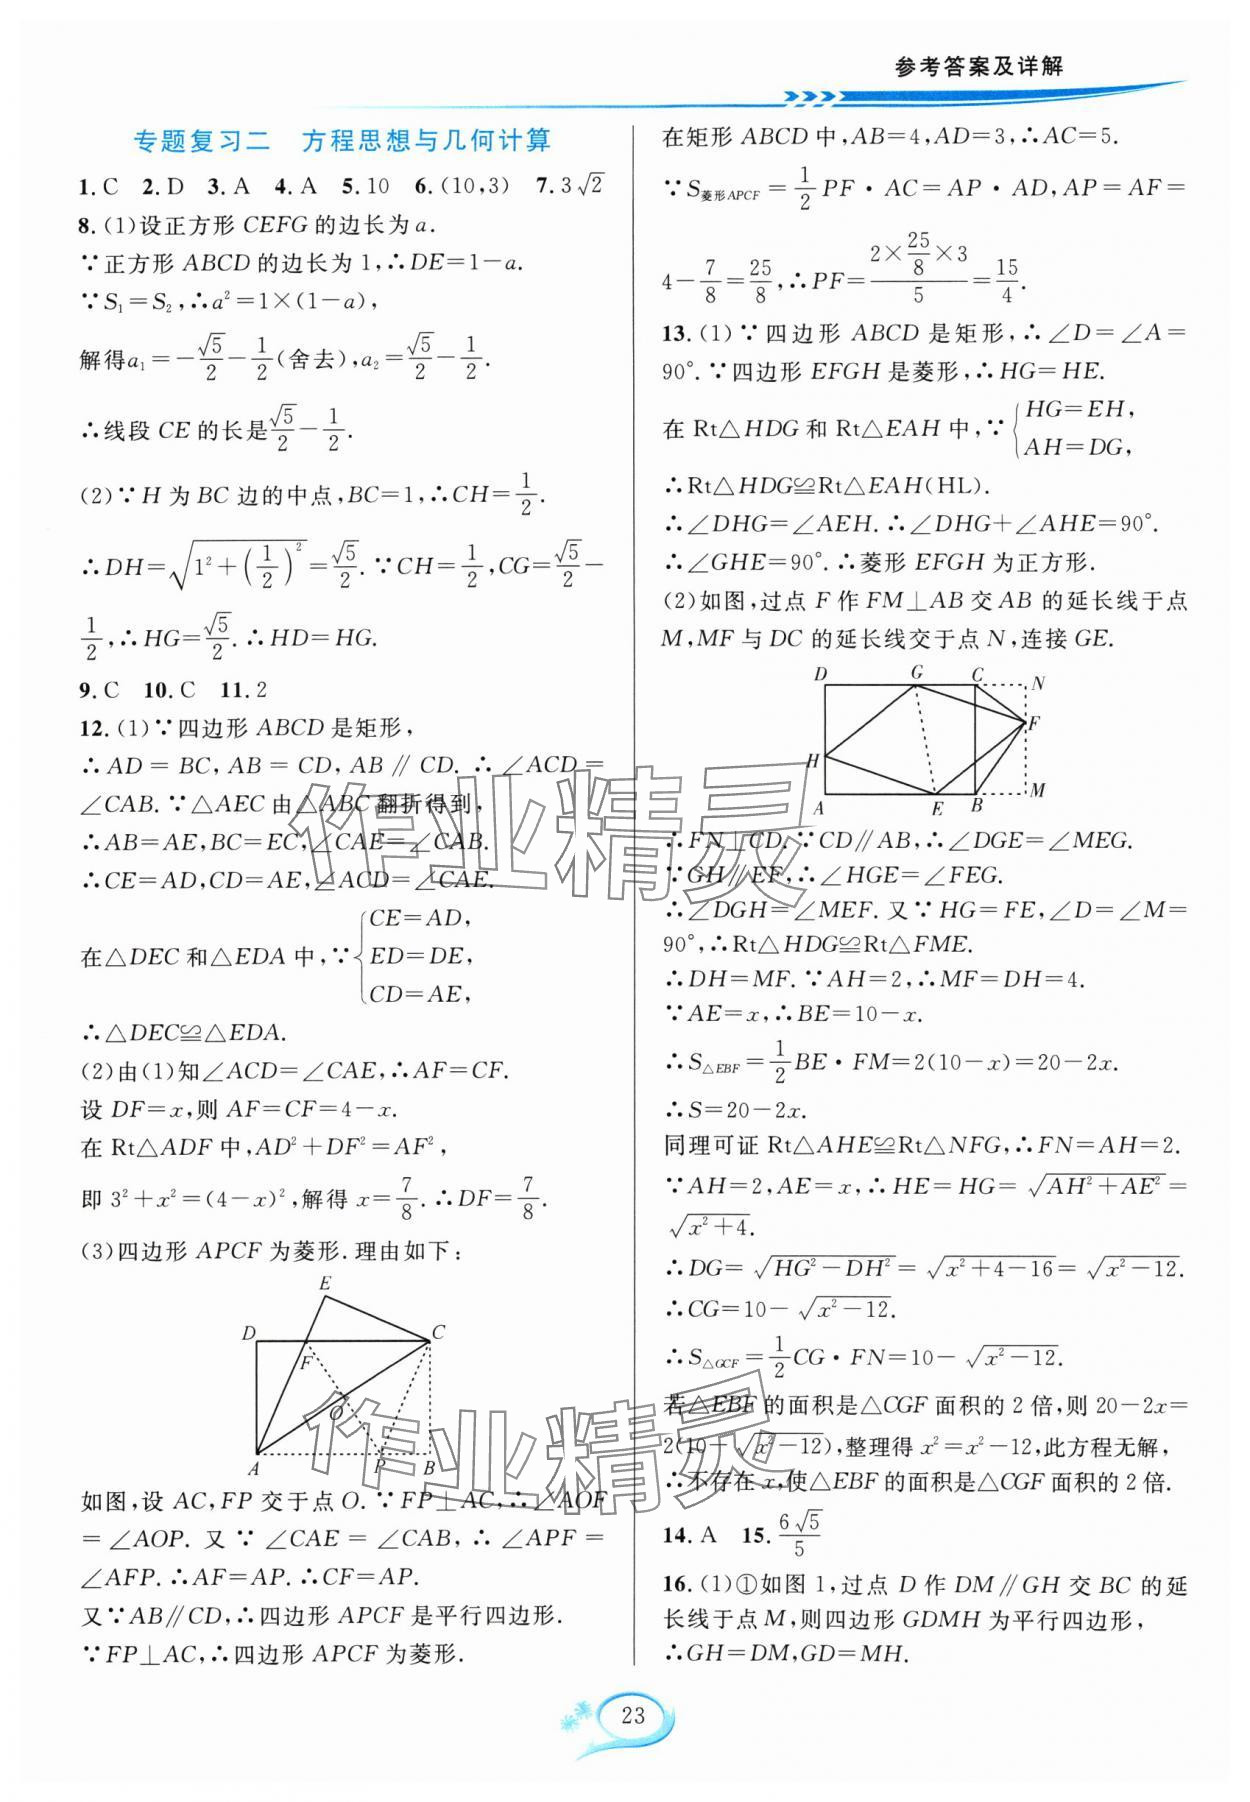 参考答案及详解
专题复习二 方程思想与几何计算
1.C 2.D 3.A 4.A 5.10 6.(10,3) 7.3√2
8.(1)设正方形 CEFG 的边长为 a.
∵正方形 ABCD 的边长为 1,∴DE=1-a.
∵S₁=S₂,∴a²=1×(1-a),
解得a₁=-√5/2-1/2(舍去),a₂=√5/2-1/2.
∴线段 CE 的长是√5/2-1/2.
(2)∵H 为 BC 边的中点,BC=1,∴CH=1/2.
∴DH=√(1²+(1/2)²)=√5/2.∵CH=1/2,CG=√5/2-
1/2,∴HG=√5/2.∴HD=HG.
9.C 10.C 11.2
12.(1)∵四边形 ABCD 是矩形,
∴AD=BC,AB=CD,AB∥CD.∴∠ACD=
∠CAB.∵△AEC 由△ABC 翻折得到,
∴AB=AE,BC=EC,∠CAE=∠CAB.
∴CE=AD,CD=AE,∠ACD=∠CAE.
在△DEC 和△EDA 中,∵{CE=AD,
ED=DE,
CD=AE,
∴△DEC≌△EDA.
(2)由(1)知∠ACD=∠CAE,∴AF=CF.
设 DF=x,则 AF=CF=4-x.
在 Rt△ADF 中,AD²+DF²=AF²,
即 3²+x²=(4-x)²,解得 x=7/8.∴DF=7/8.
(3)四边形 APCF 为菱形.理由如下:
E
D C
F
O
A P B
如图,设 AC,FP 交于点 O.∵FP⊥AC,∴∠AOF
=∠AOP.又∵∠CAE=∠CAB,∴∠APF=
∠AFP.∴AF=AP.∴CF=AP.
又∵AB∥CD,∴四边形 APCF 是平行四边形.
∵FP⊥AC,∴四边形 APCF 为菱形.
在矩形 ABCD 中,AB=4,AD=3,∴AC=5.
∵S菱形APCF=1/2PF·AC=AP·AD,AP=AF=
4-7/8=25/8,∴PF=(2×25/8×3)/5=15/4.
13.(1)∵四边形 ABCD 是矩形,∴∠D=∠A=
90°.∵四边形 EFGH 是菱形,∴HG=HE.
在 Rt△HDG 和 Rt△EAH 中,∵{HG=EH,
AH=DG,
∴Rt△HDG≌Rt△EAH(HL).
∴∠DHG=∠AEH.∴∠DHG+∠AHE=90°.
∴∠GHE=90°.∴菱形 EFGH 为正方形.
(2)如图,过点 F 作 FM⊥AB 交 AB 的延长线于点
M,MF 与 DC 的延长线交于点 N,连接 GE.
D G C N
F
H
A E B M
∴FN⊥CD.∵CD∥AB,∴∠DGE=∠MEG.
∵GH∥EF,∴∠HGE=∠FEG.
∴∠DGH=∠MEF.又∵HG=FE,∠D=∠M=
90°,∴Rt△HDG≌Rt△FME.
∴DH=MF.∵AH=2,∴MF=DH=4.
∵AE=x,∴BE=10-x.
∴S△EBF=1/2BE·FM=2(10-x)=20-2x.
∴S=20-2x.
同理可证 Rt△AHE≌Rt△NFG,∴FN=AH=2.
∵AH=2,AE=x,∴HE=HG=√(AH²+AE²)=
√(x²+4).
∴DG=√(HG²-DH²)=√(x²+4-16)=√(x²-12).
∴CG=10-√(x²-12).
∴S△GCF=1/2CG·FN=10-√(x²-12).
若△EBF 的面积是△CGF 面积的 2 倍,则 20-2x=
2(10-√(x²-12)),整理得 x²=x²-12,此方程无解,
∴不存在 x,使△EBF 的面积是△CGF 面积的 2 倍.
14.A 15.6√5/5
16.(1)①如图 1,过点 D 作 DM∥GH 交 BC 的延
长线于点 M,则四边形 GDMH 为平行四边形,
∴GH=DM,GD=MH.
作业精灵
作业精灵
23